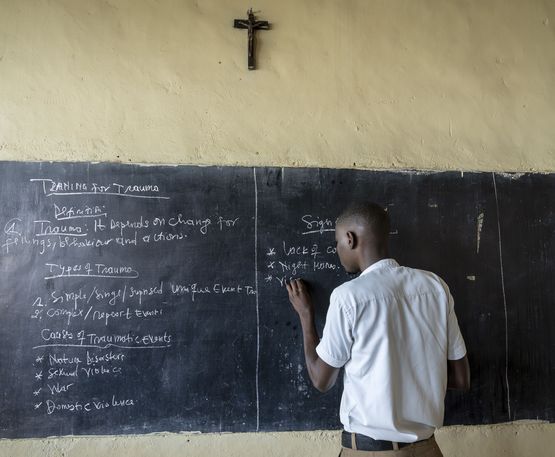 TRAINING for TRAUMA
Definition
1. TRAUMA: It Depends on change for
feelings, behaviour and actions.
Types of Trauma
1. Simple/Single/ Unique Event
2. Complex/ Event
of Traumatic Events
* Nature Disasters
* Sexual Violence
* War
* Domestic Violence
Sign
* Lack of
* Night
*